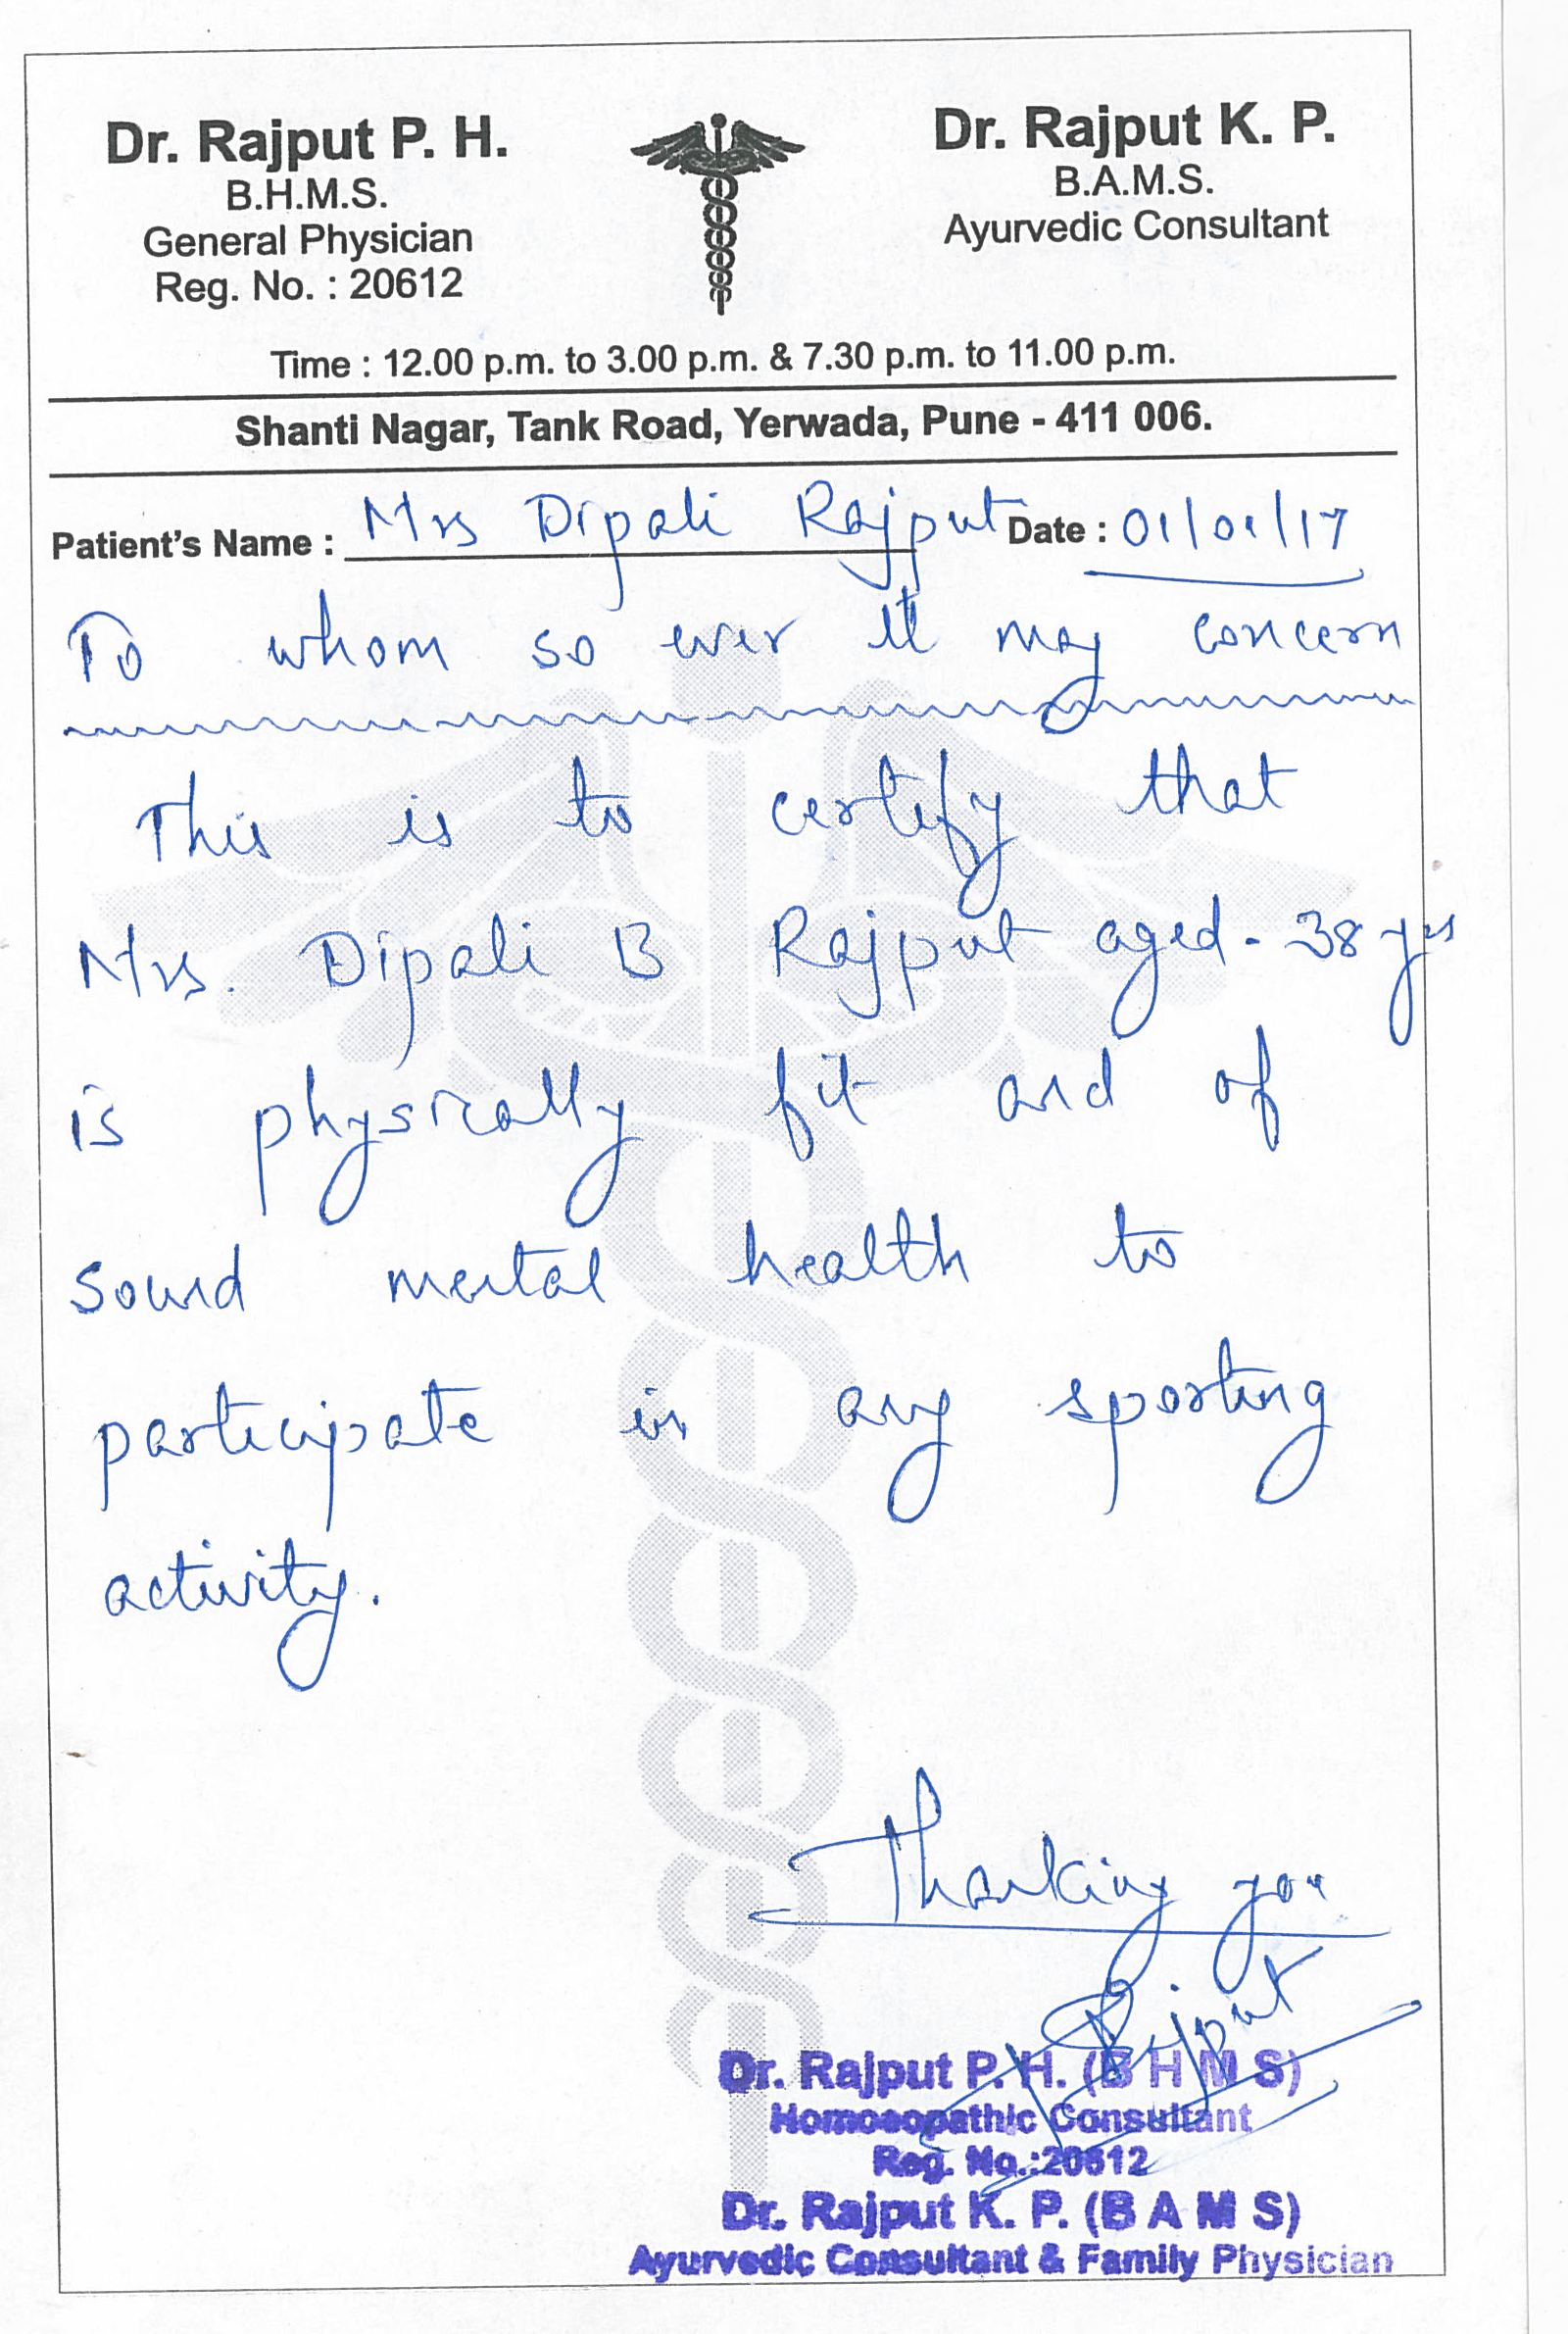 Dr. Rajput P. H.
B.H.M.S.
General Physician
Reg. No. : 20612
Dr. Rajput K. P.
B.A.M.S.
Ayurvedic Consultant
Time : 12.00 p.m. to 3.00 p.m. & 7.30 p.m. to 11.00 p.m.
Shanti Nagar, Tank Road, Yerwada, Pune - 411 006.
Patient's Name : Mrs Dipali Rajput Date : 01/01/17
To whom so ever it may concern
This is to certify that
Mrs. Dipali B Rajput aged - 38 yrs
is physically fit and of
sound mental health to
participate in any sporting
activity.
Thanking you
Rajput
Dr. Rajput P. H. (B H M S)
Homoeopathic Consultant
Reg. No.:20612
Dr. Rajput K. P. (B A M S)
Ayurvedic Consultant & Family Physician